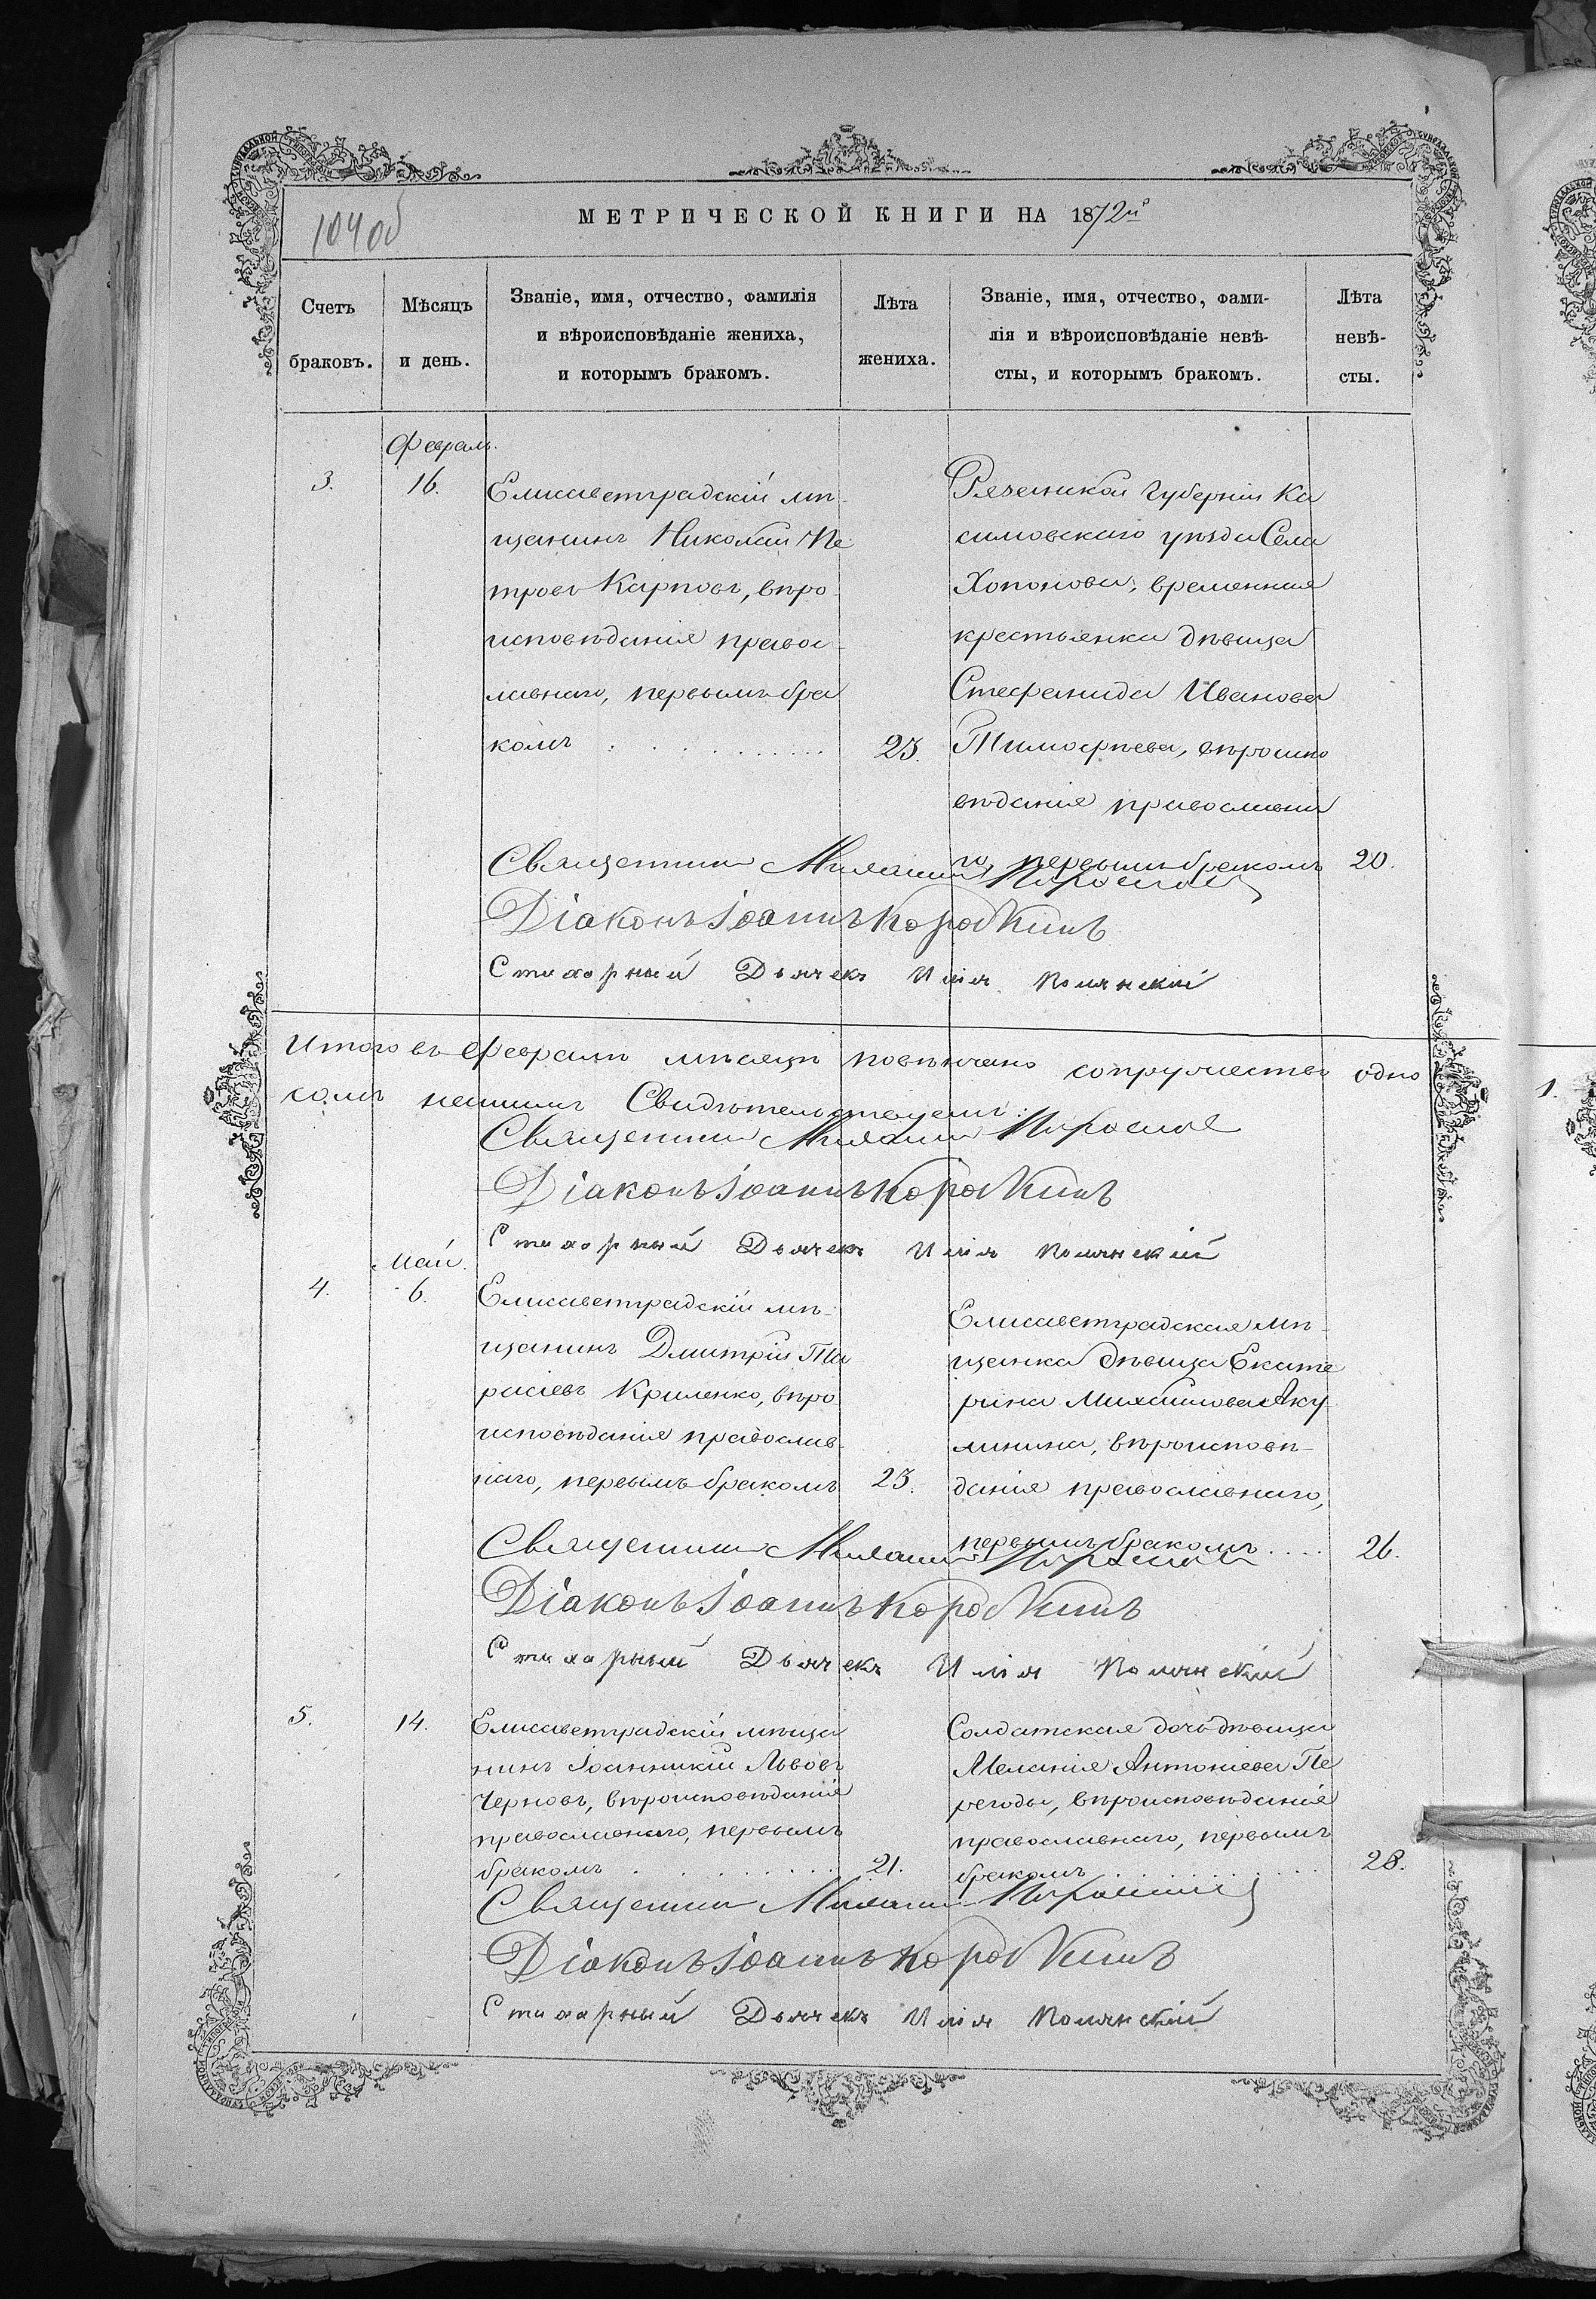 104об
МЕТРИЧЕСКОЙ КНИГИ НА 1872й
Счетъ браковъ.
Мѣсяцъ и день.
Званіе, имя, отчество, фамилія
и вѣроисповѣданіе жениха,
и которымъ бракомъ.
Лѣта
жениха.
Званіе, имя, отчество, фами-
лія и вѣроисповѣданіе невѣ-
сты, и которымъ бракомъ.
Лѣта
невѣ-
сты.
Февраль.
3.
16.
Елисаветградскій мѣ-
щанинъ Николай Пе
тровъ Карповъ, вѣро-
исповѣданія правос-
лавнаго, первымъ бра
комъ
25.
Рязанской Губерніи Ка
симовскаго уѣзда Села
Хопонова, временная
крестьянка дѣвица
Стефанида Иванова
Тимофѣева, вѣроиспо
вѣданія православна
го, первымъ бракомъ
20.
Священникъ
Діаконъ Іоаннъ Коропкинъ
Стихарный Дьячекъ Илія Полянскій
Итого въ Февралѣ мѣсяцѣ повѣнчано супружество одно
Свидѣтельствуемъ:
Священникъ
Діаконъ Іоаннъ
Стихарный Дьячекъ Илія Полянскій
Май.
4.
6.
Елисаветградскій мѣ-
щанинъ Дмитрій Та
расіевъ Криленко, вѣро
исповѣданія православ-
наго, первымъ бракомъ
25.
Елисаветградская мѣ-
щанка дѣвица Екате
рина Михаилова Аку
линина, вѣроисповѣ-
данія православнаго,
первымъ бракомъ
26.
Священникъ
Діаконъ Іоаннъ
Стихарный Дьячекъ Илія Полянскій
5.
14.
Елисаветградскій мѣща
нинъ Іоанникій Львовъ
Черновъ, вѣроисповѣданія
православнаго, первымъ
бракомъ
21.
Солдатская дочь дѣвица
Меланія Антоніева Пе
регоды, вѣроисповѣданія
православнаго, первымъ
бракомъ
28.
Священникъ
Діаконъ Іоаннъ
Стихарный Дьячекъ Илія Полянскій
1.